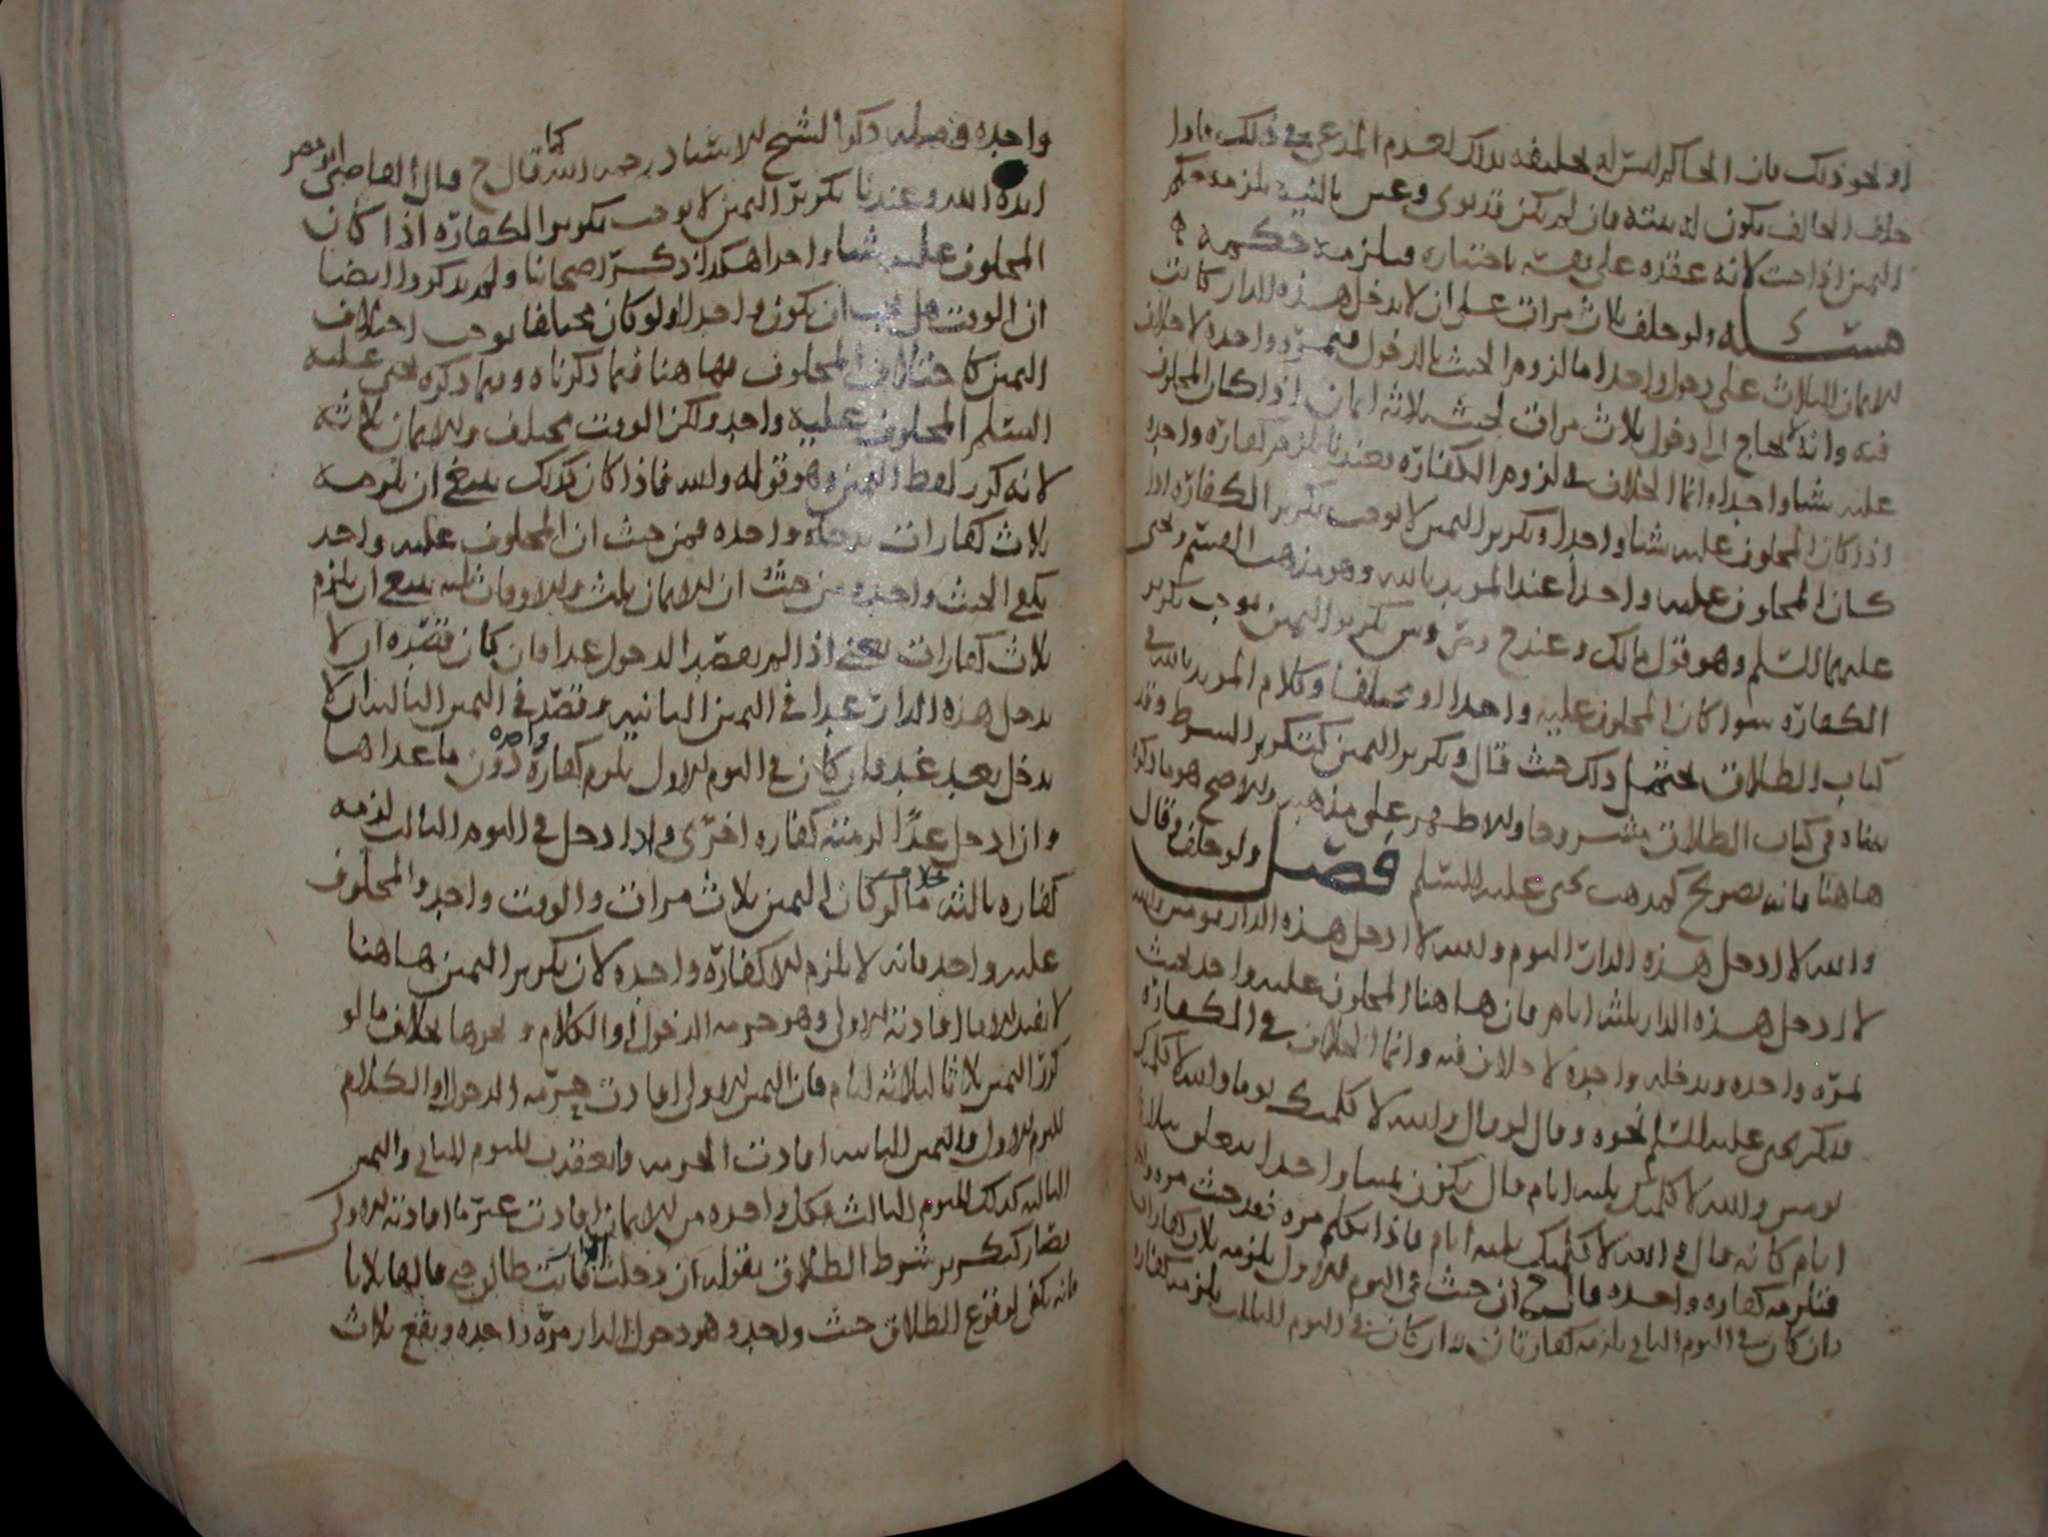 او نحو ذلك فان الحاكم ليس له تحليفه بذلك لعدم المدعي في ذلك فاذا
حلف الحالف يكون له نيته فان لم يكن قد نوى وعين بالنية يلزمه حكم
اليمين اذا حنث لانه عقده على نفسه باختياره فيلزمه حكمه
مسئلة ولو حلف ثلاث مرات على ان لا يدخل هذه الدار كانت
الايمان الثلاث على دخول واحد اما لزوم الحنث بالدخول فبمرة واحدة لا خلاف
فيه وانه لا يحتاج الى دخول ثلاث مرات لحنث ثلاثة ايمان اذا كان المحلوف
عليه شيا واحدا وانما الخلاف في لزوم الكفارة فعندنا تلزم كفارة واحدة
اذا كان المحلوف عليه شيا واحدا وتكرير اليمين لا يوجب تكرير الكفارة اذا
كان المحلوف عليه واحدا عند المويد بالله وهو مذهب القسم ويحيى
عليهما السلم وهو قول مالك وعند ح وص وش تكرير اليمين يوجب تكرير
الكفارة سوا كان المحلوف عليه واحدا او مختلفا وكلام المويد بالله في
كتاب الطلاق يحتمل ذلك حيث قال وتكرير اليمين كتكرير الشرط وقد
بيناه في كتاب الطلاق مشروحا والاظهر على مذهبه والاصح هو ما ذكره
هاهنا فانه تصريح كمذهب يحيى عليه السلم فصل ولو حلف وقال
والله لا ادخل هذه الدار اليوم والله لا ادخل هذه الدار يومين والله
لا ادخل هذه الدار ثلثة ايام فان هاهنا المحلوف عليه واحد يحنث
بمرة واحدة وبدخلة واحدة لا خلاف فيه وانما الخلاف في الكفارة
فذكر يحيى عليه السلم نحوه وقال لو قال والله لا كلمتك يوما والله لا كلمتك
يومين والله لا كلمتك ثلثة ايام قال يكون يمينا واحدا يتعلق بثلاثة
ايام كانه قال والله لا كلمتك ثلثة ايام فاذا تكلم مرة فقد حنث مرة
فتلزمه كفارة واحدة قال ح ان حنث في اليوم الاول يلزمه ثلاث كفارات
وان كان في اليوم الثاني يلزمه كفارتان وان كان في اليوم الثالث يلزمه كفارة
واحدة وفصله ذكره الشيخ الاستاذ رحمه الله كما قال ح قال القاضي ابو مضر
ايده الله وعندنا تكرير اليمين لا يوجب تكرير الكفارة اذا كان
المحلوف عليه شيا واحدا هكذا ذكر اصحابنا ولم يذكروا ايضا
ان الوقت هل يجب ان يكون واحدا ولو كان مختلفا يوجب اختلاف
اليمين كاختلاف المحلوف فهاهنا فيما ذكرناه وفيما ذكره يحيى عليه
السلم المحلوف عليه واحد ولكن الوقت مختلف والايمان ثلاثة
لانه كرر لفظ اليمين وهو قوله والله فاذا كان كذلك ينبغي ان تلزمه
ثلاث كفارات بدخلة واحدة فمن حيث ان المحلوف عليه واحد
يكفي الحنث واحدة ومن حيث ان الايمان ثلث والاوقات ثلثة ينبغي ان يلزم
ثلاث كفارات يعني اذا لم يقصد الدخول غدا فان كان قصده ان لا
يدخل هذه الدار غدا في اليمين الثانية وقصد في اليمين الثالثة ان لا
يدخل بعد غد فان كان في اليوم الاول يلزم كفارة واحدة دون ما عداها
وان دخل غدا لزمته كفارة اخرى واذا دخل في اليوم الثالث لزمه
كفارة ثالثة بخلاف ما لو كان اليمين ثلاث مرات والوقت واحد والمحلوف
عليه واحد فانه لا يلزم الا كفارة واحدة لان تكرير اليمين هاهنا
لا يفيد الا ما افادته الاولى وهو حرمة الدخول او الكلام ونحوها بخلاف ما لو
كرر اليمين ثلاثا لثلاثة ايام فان اليمين الاولى افادت حرمة الدخول او الكلام
لليوم الاول واليمين الثانية افادت الحرمة وانعقدت لليوم الثاني واليمين
الثالثة كذلك لليوم الثالث فكل واحدة من الايمان افادت غير ما افادته الاولى
فصار كتكرير شرط الطلاق بقوله ان دخلت الدار فانت طالق حتى قالها ثلاثا
فانه يكفي لوقوع الطلاق حنث واحد وهو دخول الدار مرة واحدة ويقع ثلاث